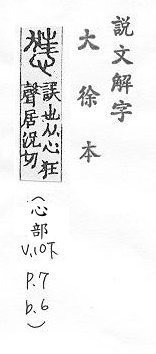 説文解字
大徐本
誤也从心狂
聲居況切
(心部
V.10下
P.7
b.6)